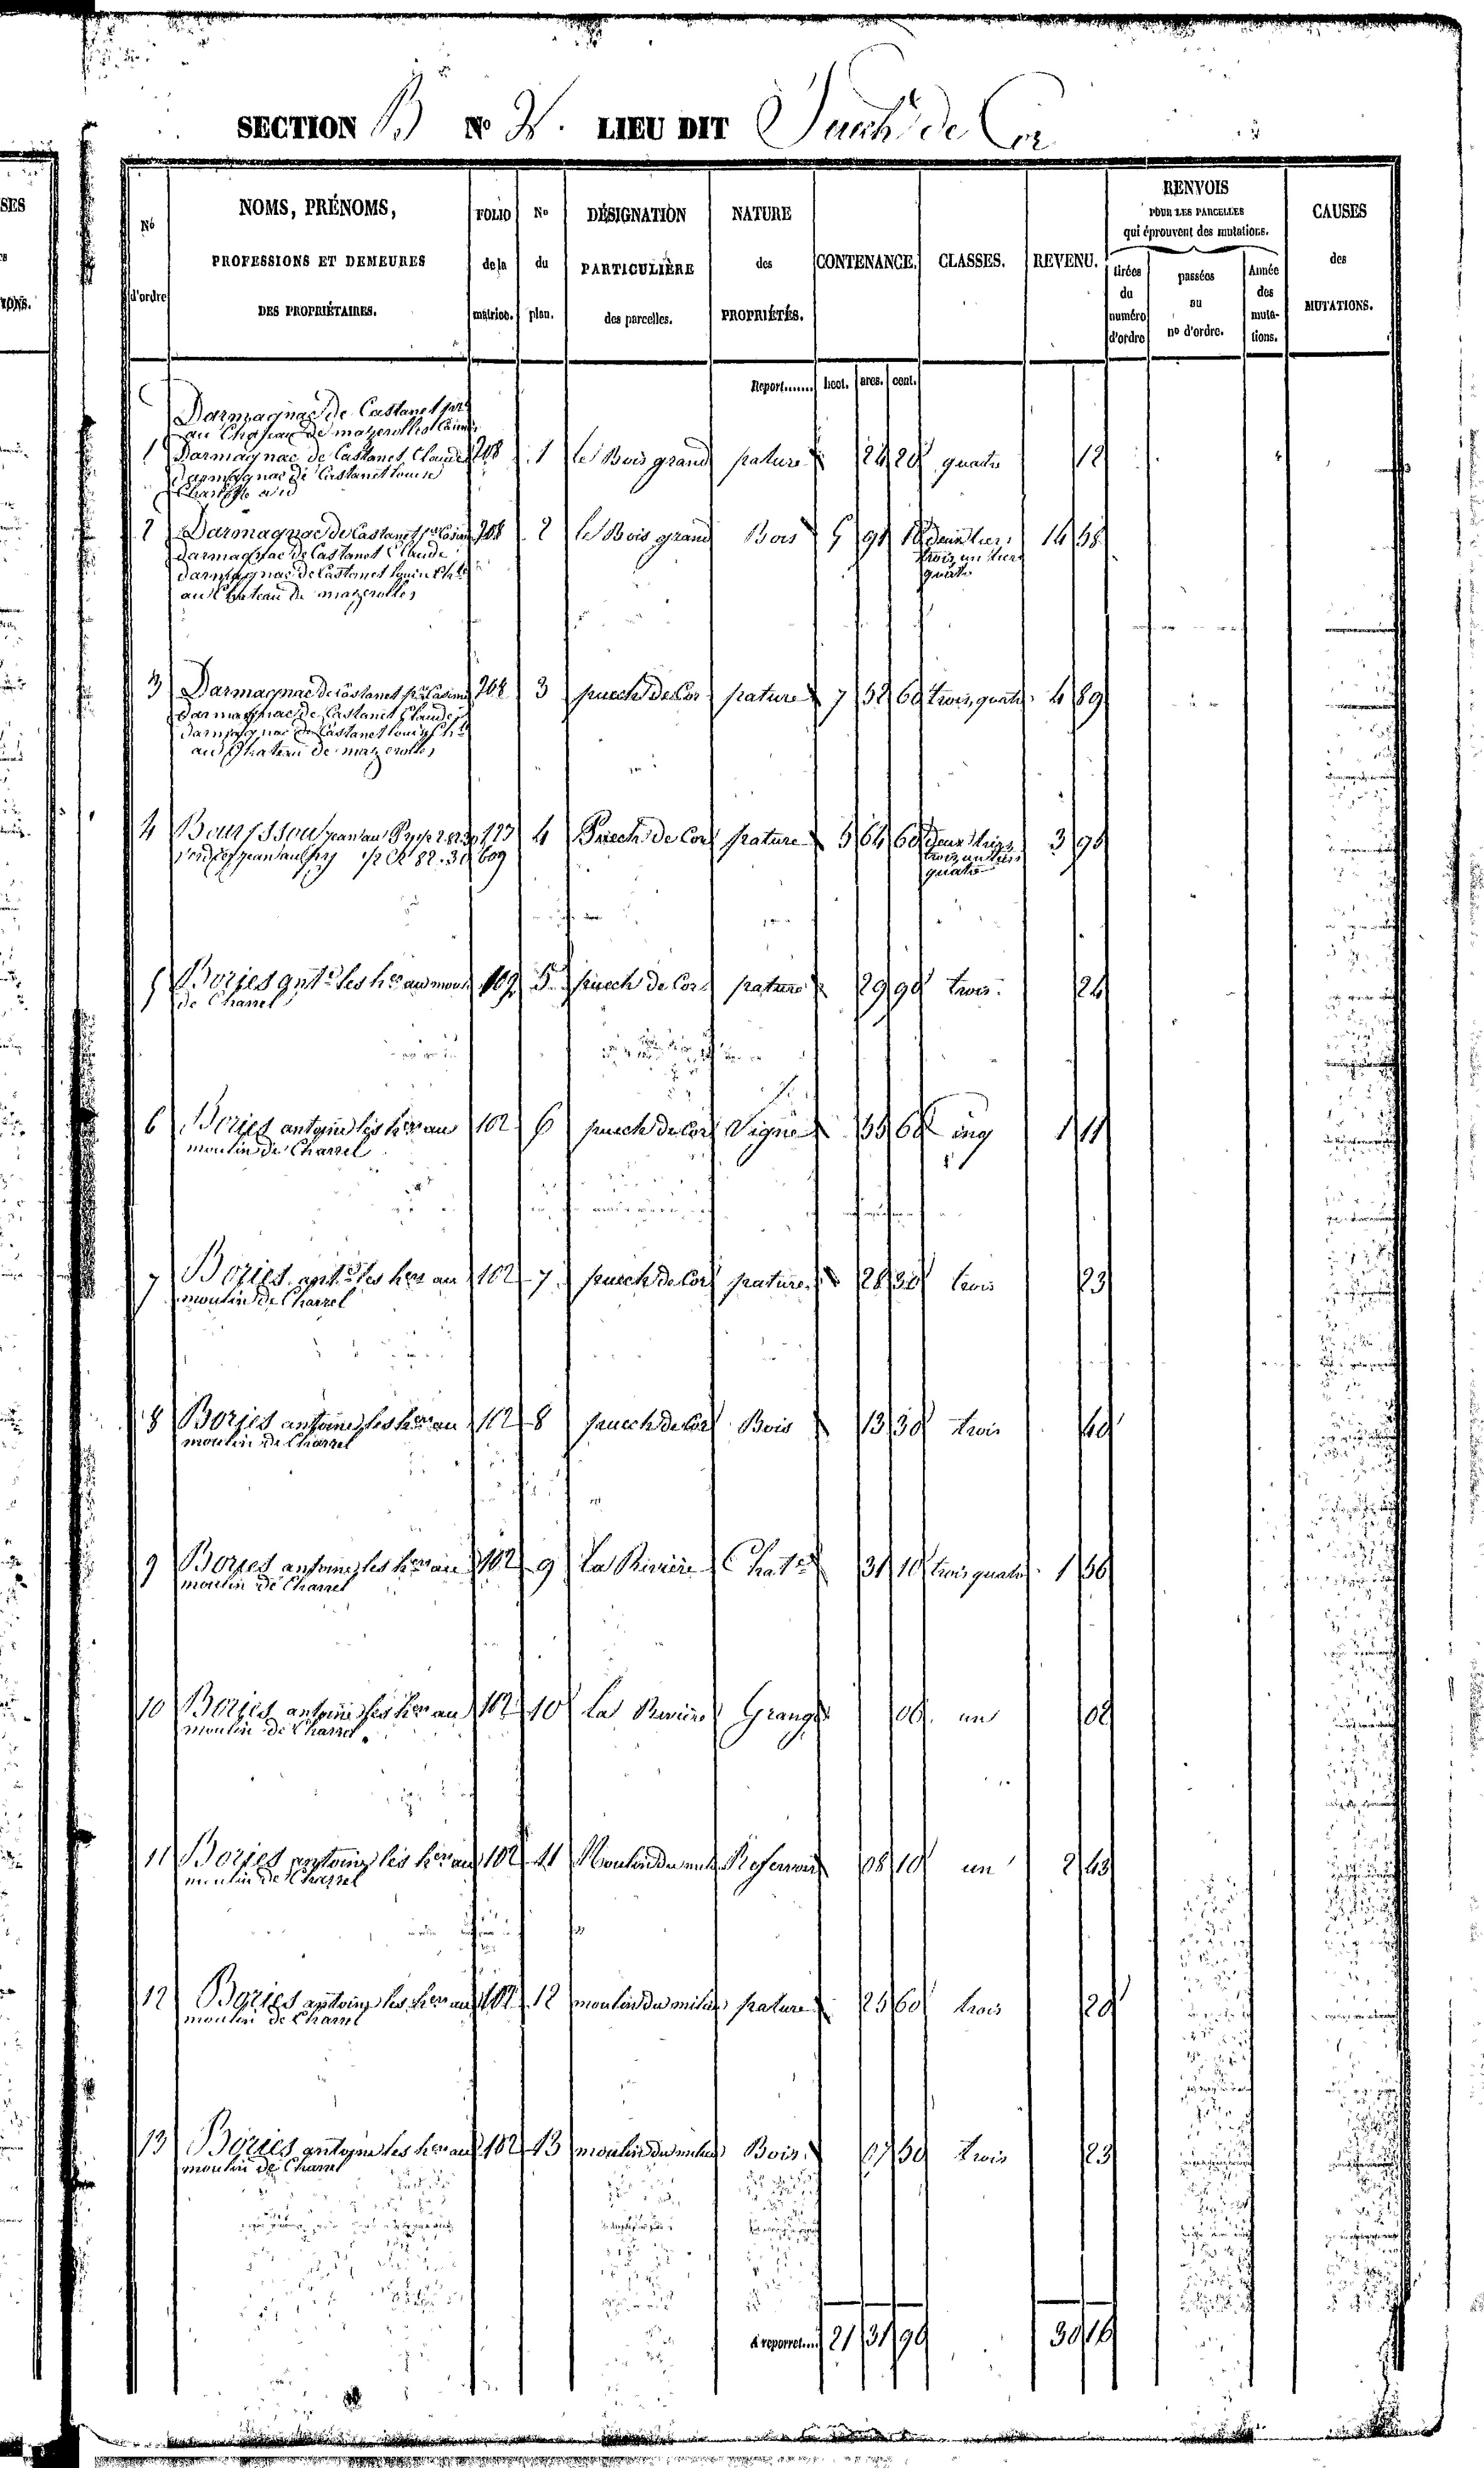 SECTION B No LIEU DIT Puech de Cor
No d'ordre
NOMS, PRÉNOMS,
PROFESSIONS ET DEMEURES
DES PROPRIÉTAIRES.
FOLIO de la matrice.
No du plan.
DÉSIGNATION PARTICULIÈRE des parcelles.
NATURE des PROPRIÉTÉS.
CONTENANCE.
CLASSES.
REVENU.
RENVOIS
POUR LES PARCELLES
qui éprouvent des mutations.
tirées du numéro d'ordre
passées au no d'ordre.
Année des mutations.
CAUSES des MUTATIONS.
Report....... hect. ares. cent.
Darmagnac de Castanet
au Chateau de mazerolles
1 Darmagnac de Castanet Claude 208 1 le Bois grand pature 24 20 quatre 12
Darmagnac de Castanet Louise
2 Darmagnac de Castanet 208 2 le Bois grand Bois 91 14 58
darmagnac de Castanet Claude trois un tiers
darmagnac de Castanet quatre
au Chateau de mazerolles
3 Darmagnac de Castanet Casimir 208 3 puech de Cor pature 7 52 60 trois, quatre 4 89
darmagnac de Castanet Claude
darmagnac de Castanet
au Chateau de mazerolles
4 jean au 123 4 Puech de Cor pature 5 64 60 deux tiers 3 95
jean au 609 trois un tiers
quatre
5 Bories ante les hers au moulin 102 5 puech de Cor pature 29 90 trois 24
de Charrel
6 Bories antoine les hers au 102 6 puech de Cor Vigne 55 60 cinq 1 11
moulin de Charrel
7 Bories ante les hers au 102 7 puech de Cor pature 28 30 trois 23
moulin de Charrel
8 Bories antoine les hers au 102 8 puech de Cor Bois 13 30 trois 40
moulin de Charrel
9 Bories antoine les hers au 102 9 La Riviere Chatre 31 10 trois quatre 1 56
moulin de Charrel
10 Bories antoine les hers au 102 10 La Riviere Grange 06 un 02
moulin de Charrel
11 Bories antoine les hers au 102 11 Moulin du milieu Reservoir 08 10 un 2 43
moulin de Charrel
12 Bories antoine les hers au 102 12 moulin du milieu pature 25 60 trois 20
moulin de Charrel
13 Bories antoine les hers au 102 13 moulin du milieu Bois 07 50 trois 23
moulin de Charrel
A reporter.... 21 31 90 30 16